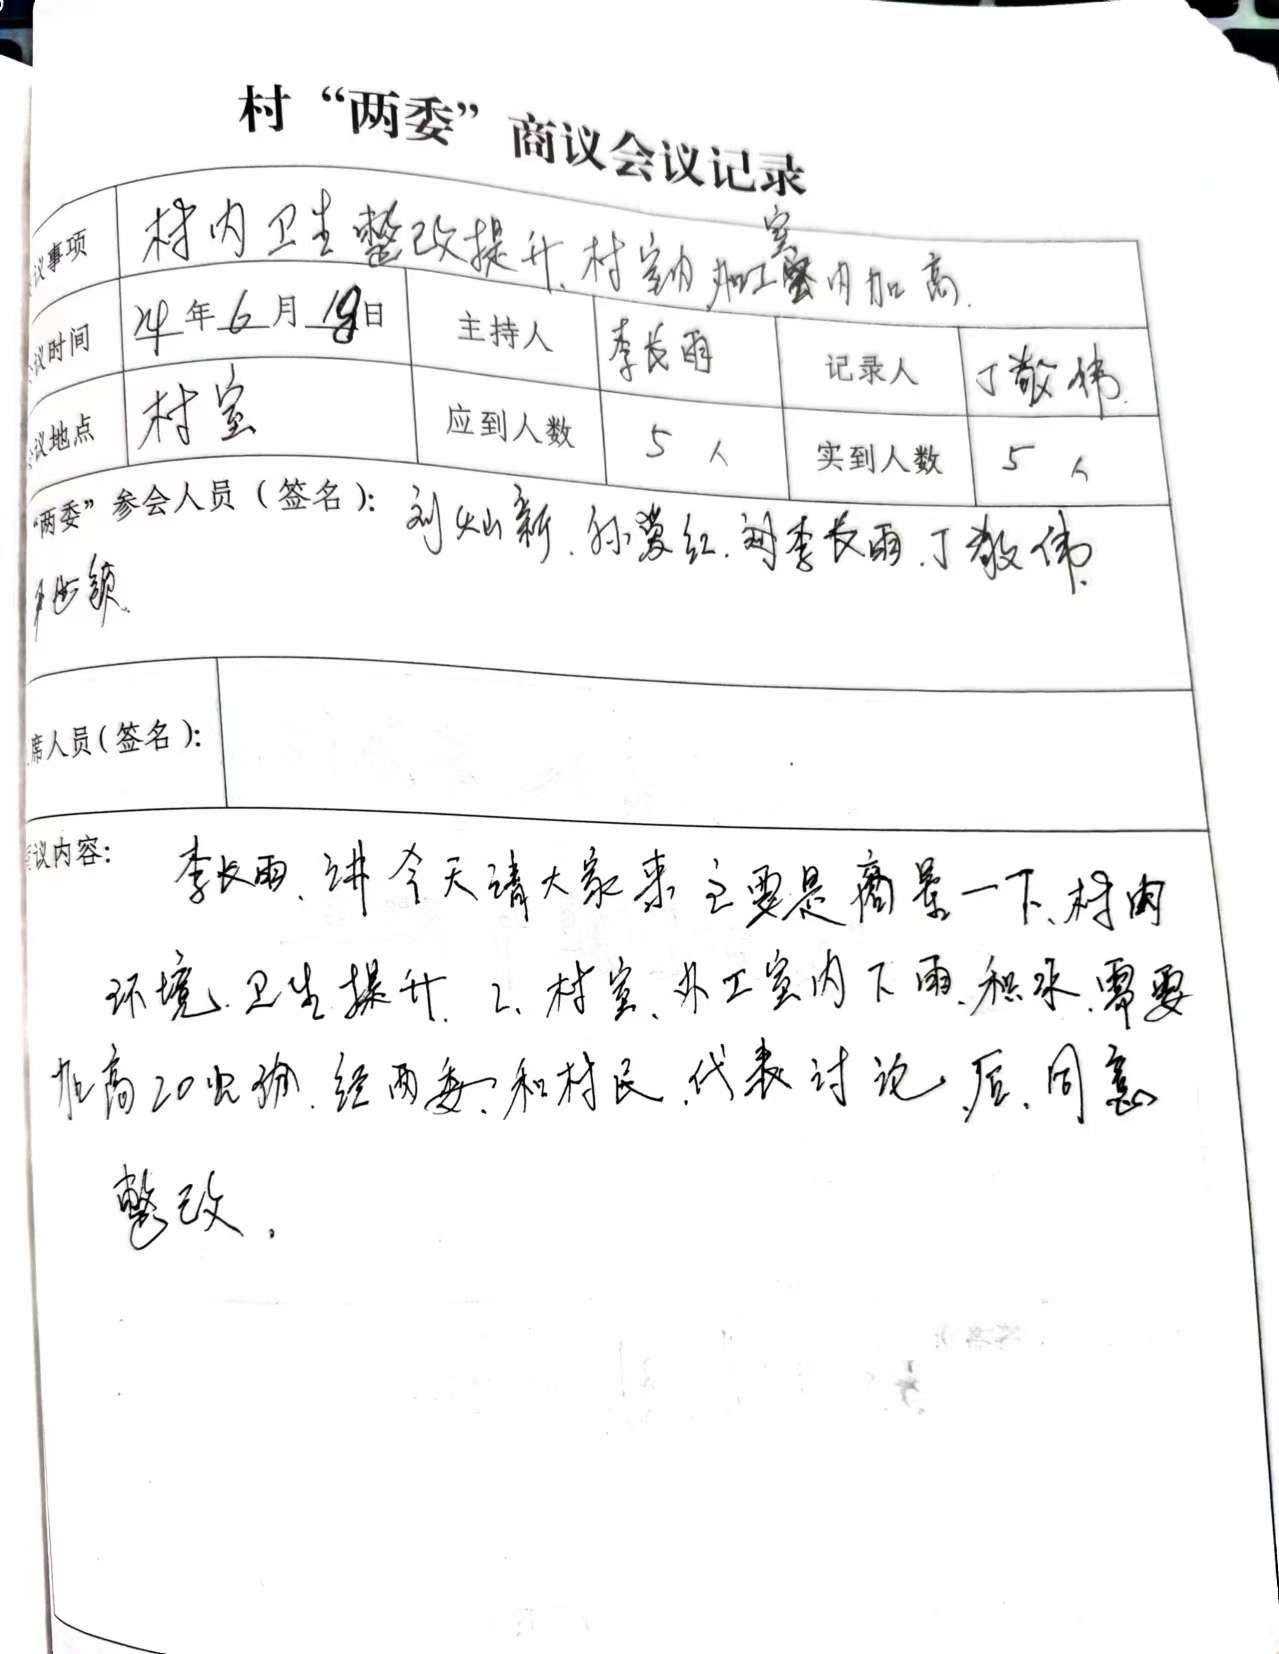 村“两委”商议会议记录
议事项 村内卫生整改提升、村室内办工室内加高.
议时间 24年6月18日 主持人 李长雨 记录人 丁敬伟
议地点 村室 应到人数 5人 实到人数 5人
“两委”参会人员（签名）： 刘灿新、孙爱红、李长雨、丁敬伟、
锁.
席人员（签名）：
议内容： 李长雨、讲今天请大家来主要是商量一下、村内
环境、卫生提升、2、村室、办工室内下雨、积水、需要
加高20公分、经两委、和村民、代表讨论、后、同意
整改。